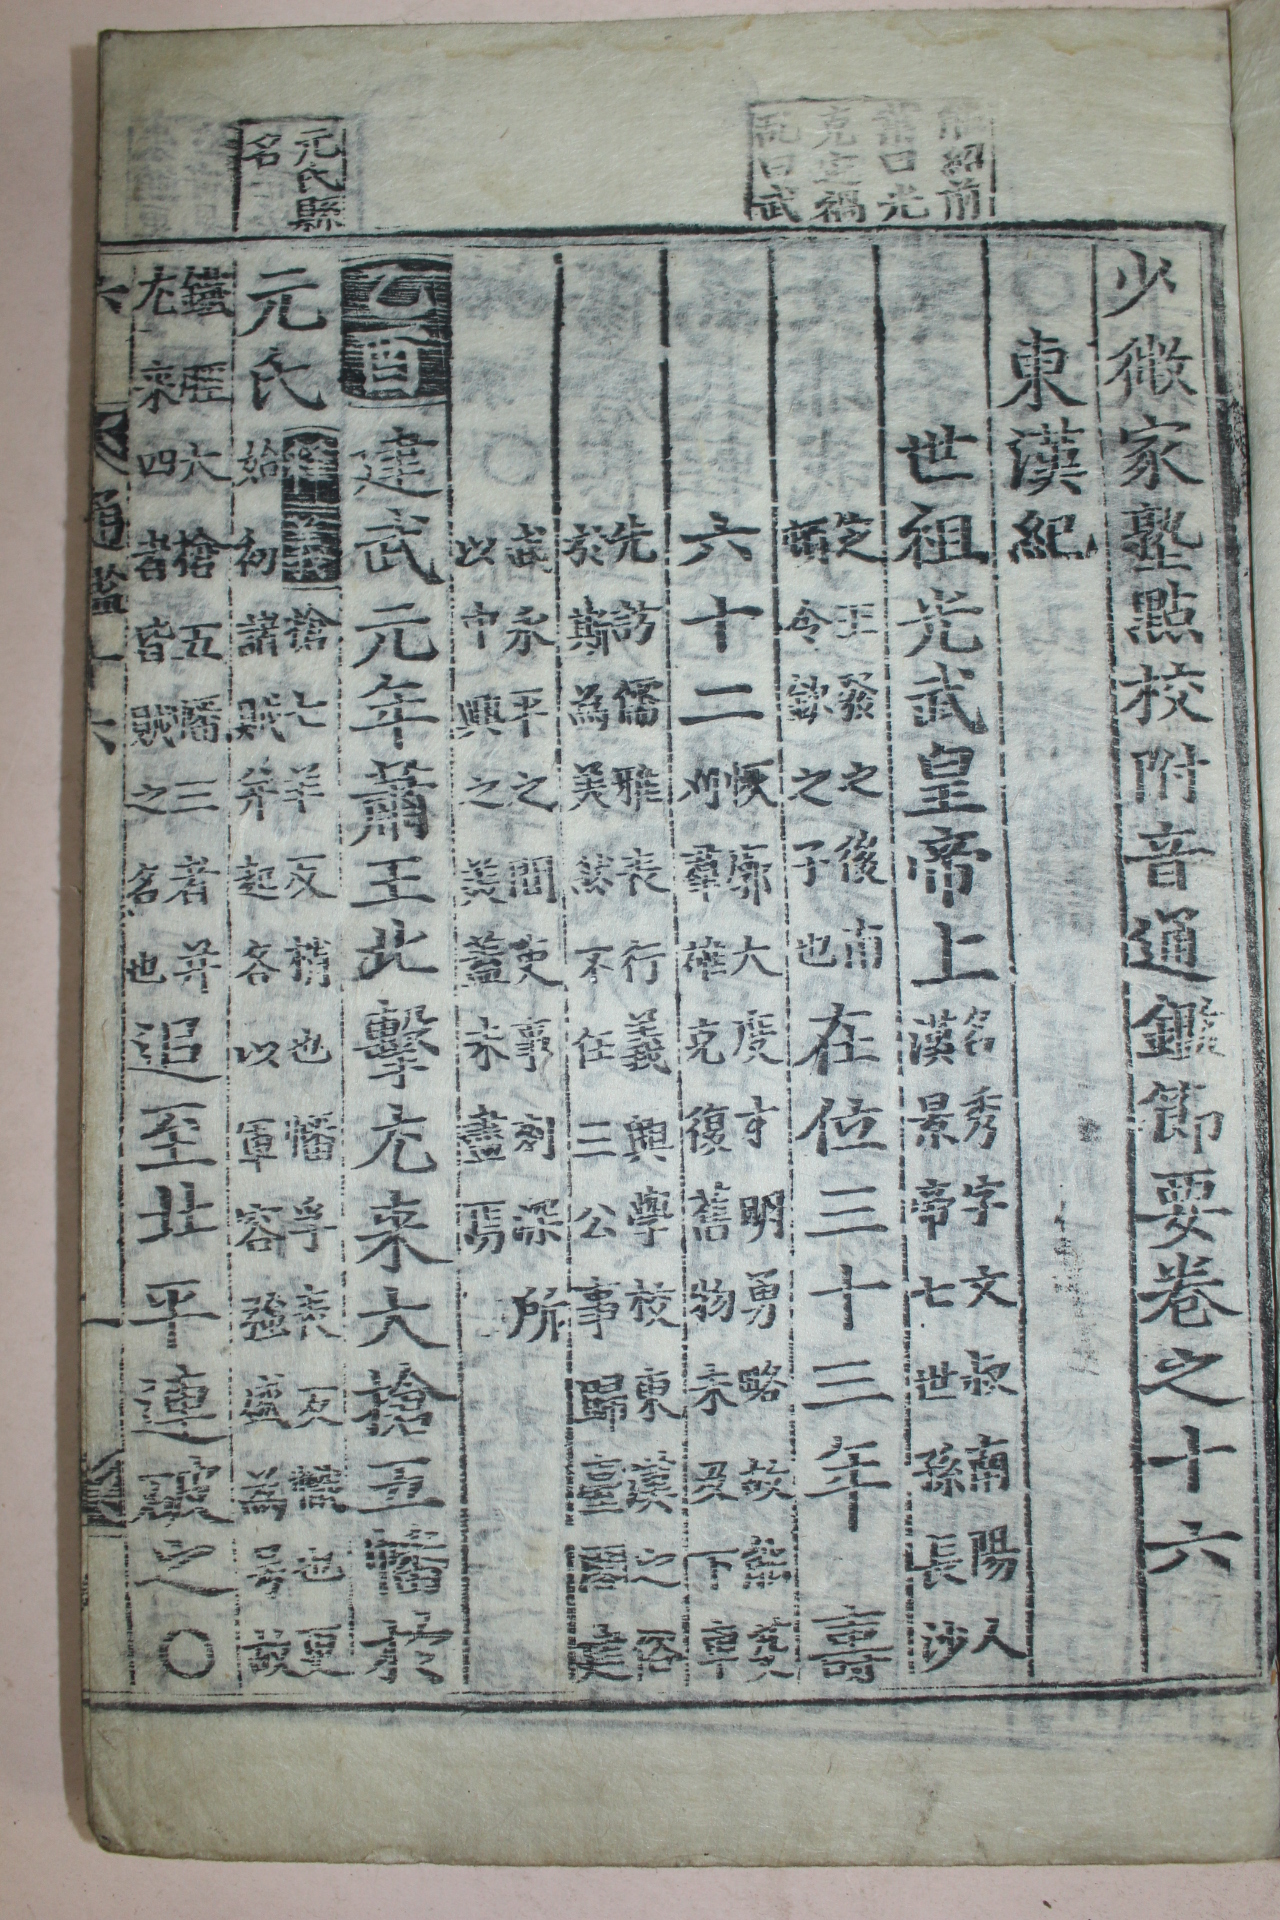 能紹前
業曰光
克定禍
亂曰武
元氏縣
名
少微家塾點校附音通鑑節要卷之十六
東漢紀
世祖光武皇帝上
名秀字文叔南陽人
漢景帝七世孫長沙
定王發之後南
頓令欽之子也
在位三十三年 壽
六十二
恢廓大度才明勇略故能芟
刈羣雄克復舊物未及下車
先訪儒雅表行義興學校東漢之俗
於斯為美然不任三公事歸臺閣建
武永平之間吏事刻深所
以中興之美蓋未盡焉
乙酉
建武元年蕭王北擊尤來大搶五幡於
元氏
釋義
搶七羊反
幡孚袁反
始初諸賊并起各以軍容強盛為号故
鐵脛大搶五幡三者并
尤來四者皆賊之名也
追至北平連破之○
通鑑十六
一